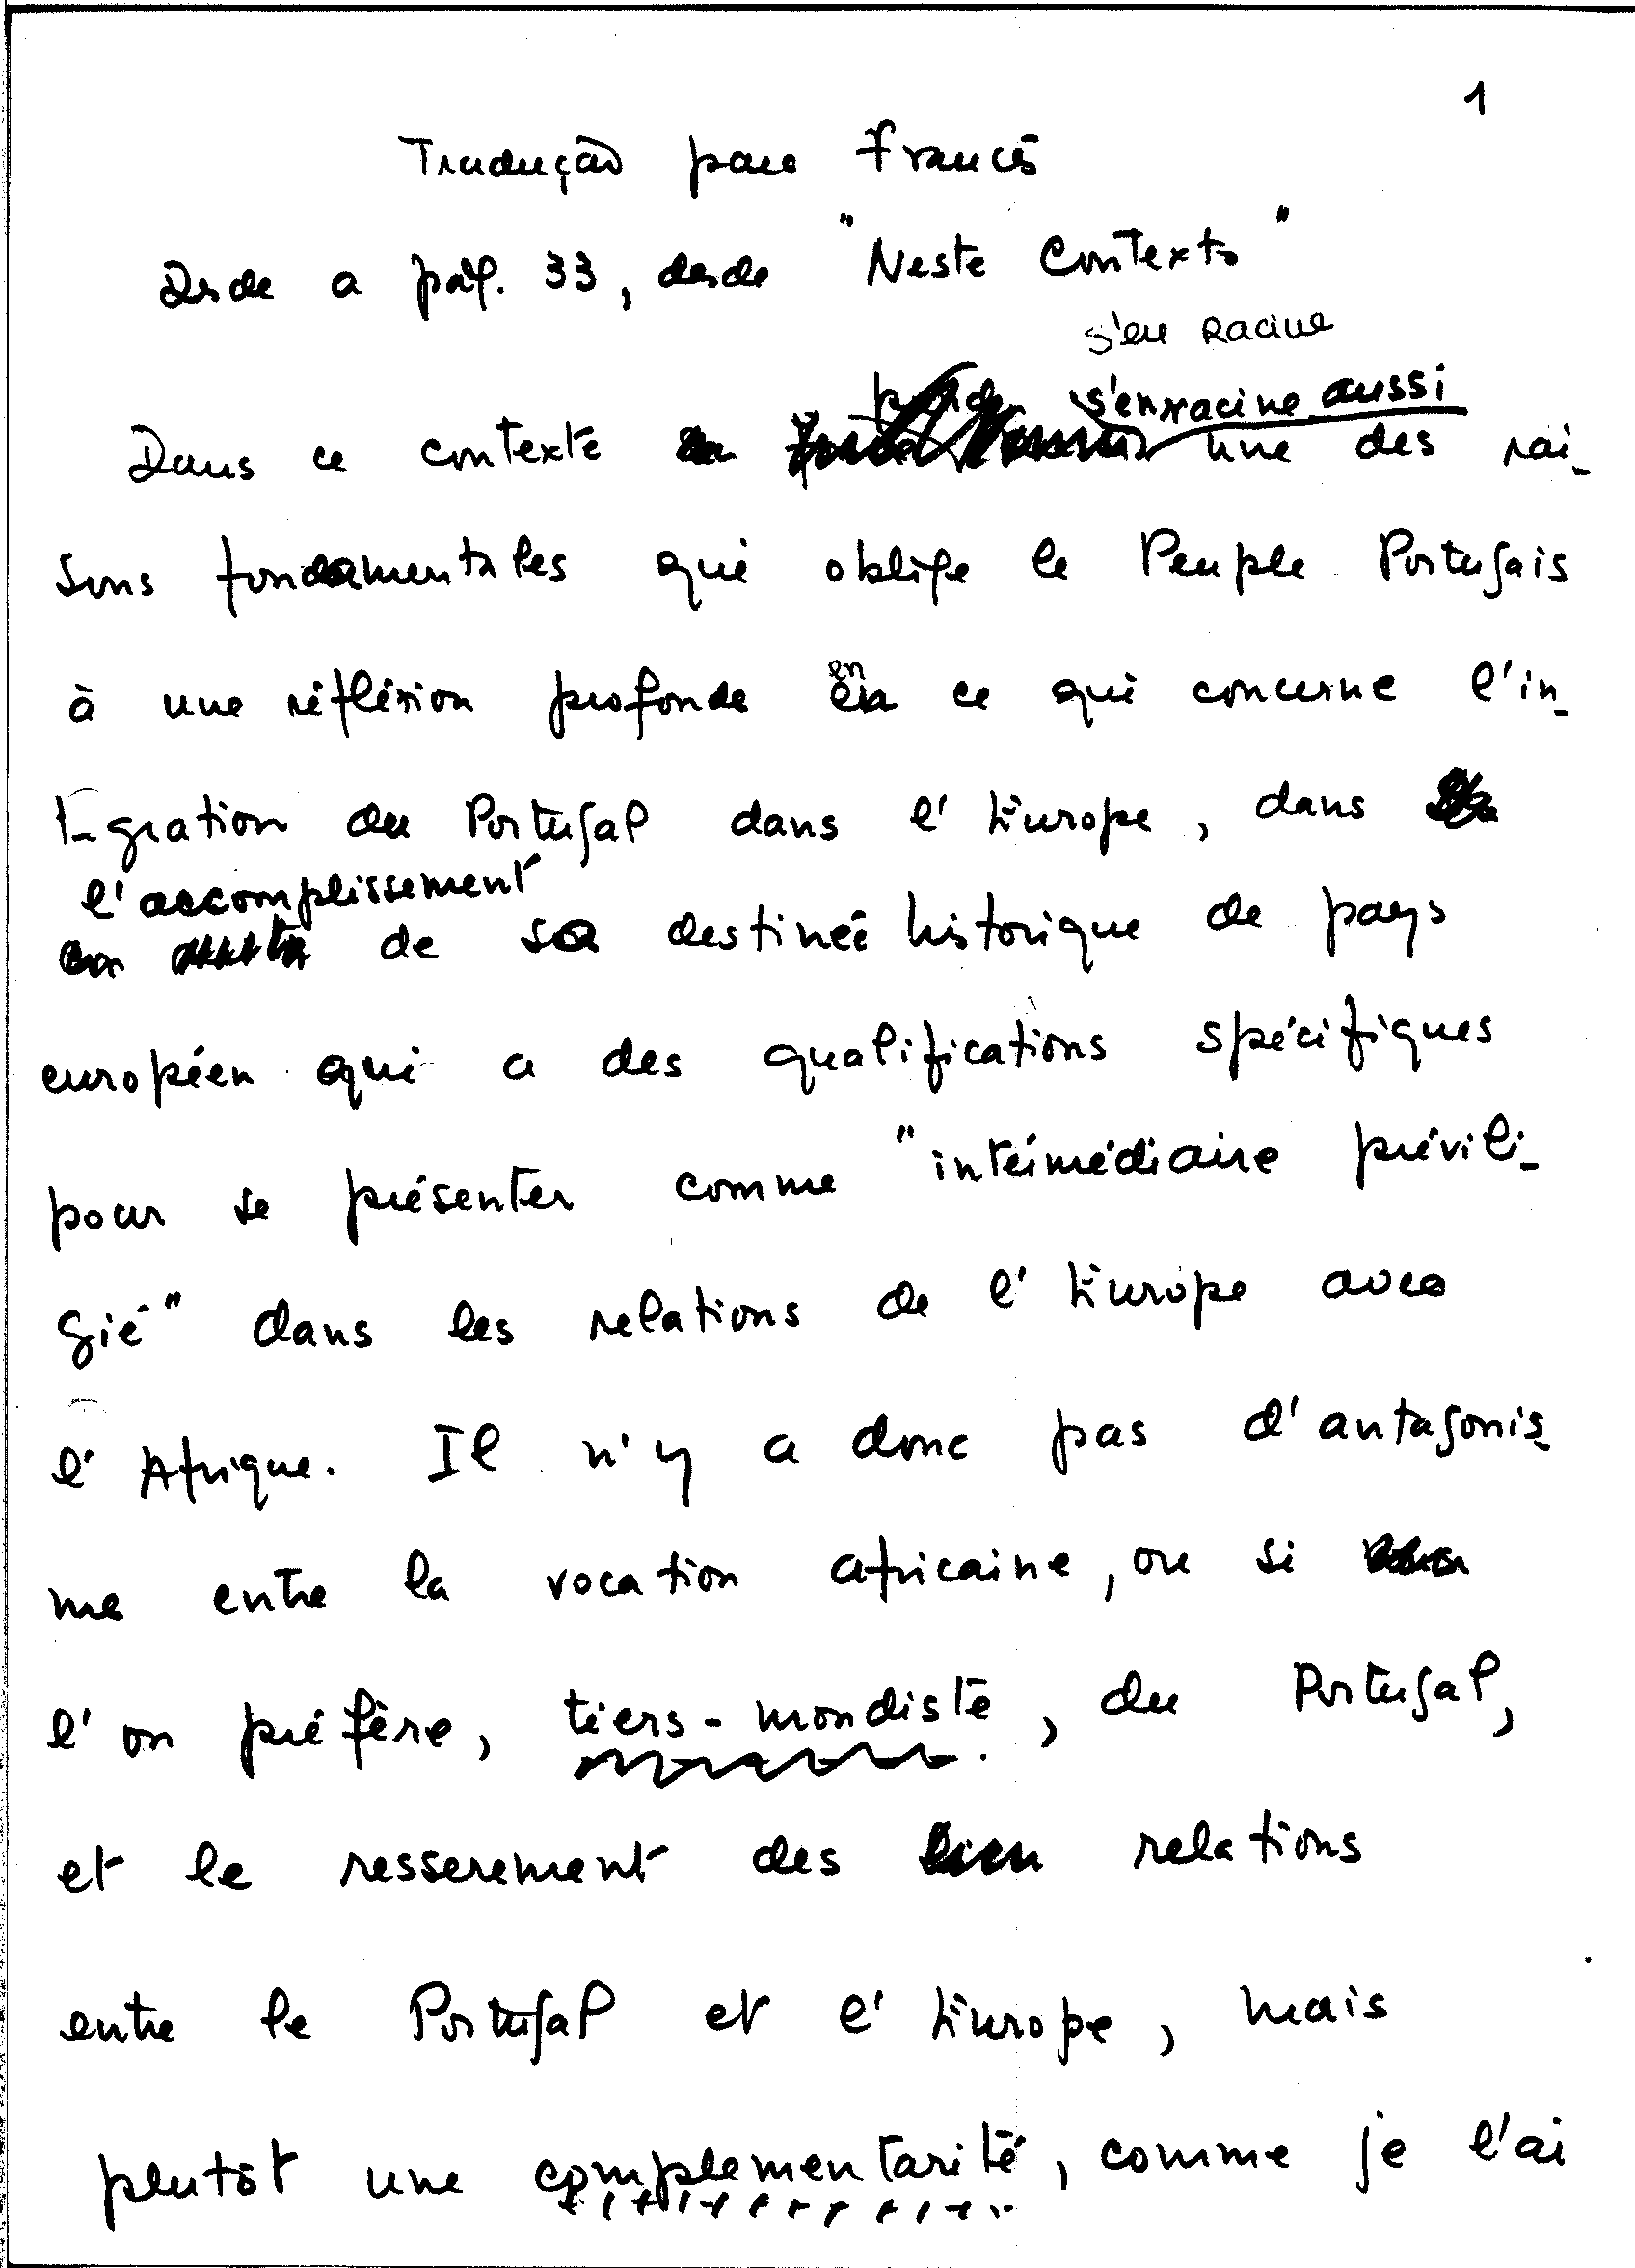 1
Tradução para Francês
Desde a pág. 33, desde "Neste Contexto"
s'en racine
s'enracine aussi
Dans ce contexte une des rai-
sons fondamentales qui oblige le Peuple Portugais
à une réfléxion profonde en ce qui concerne l'in-
tégration du Portugal dans l'Europe, dans
l'accomplissement
de sa destinée historique de pays
européen qui a des qualifications spécifiques
pour se présenter comme "intérmédiaire prévili-
gié" dans les relations de l'Europe avec
l'Afrique. Il n'y a donc pas d'antagonis-
me entre la vocation africaine, ou si
l'on préfère, tiers-mondiste, du Portugal,
et le resserement des relations
entre le Portugal et l'Europe, mais
plutôt une complementarité, comme je l'ai